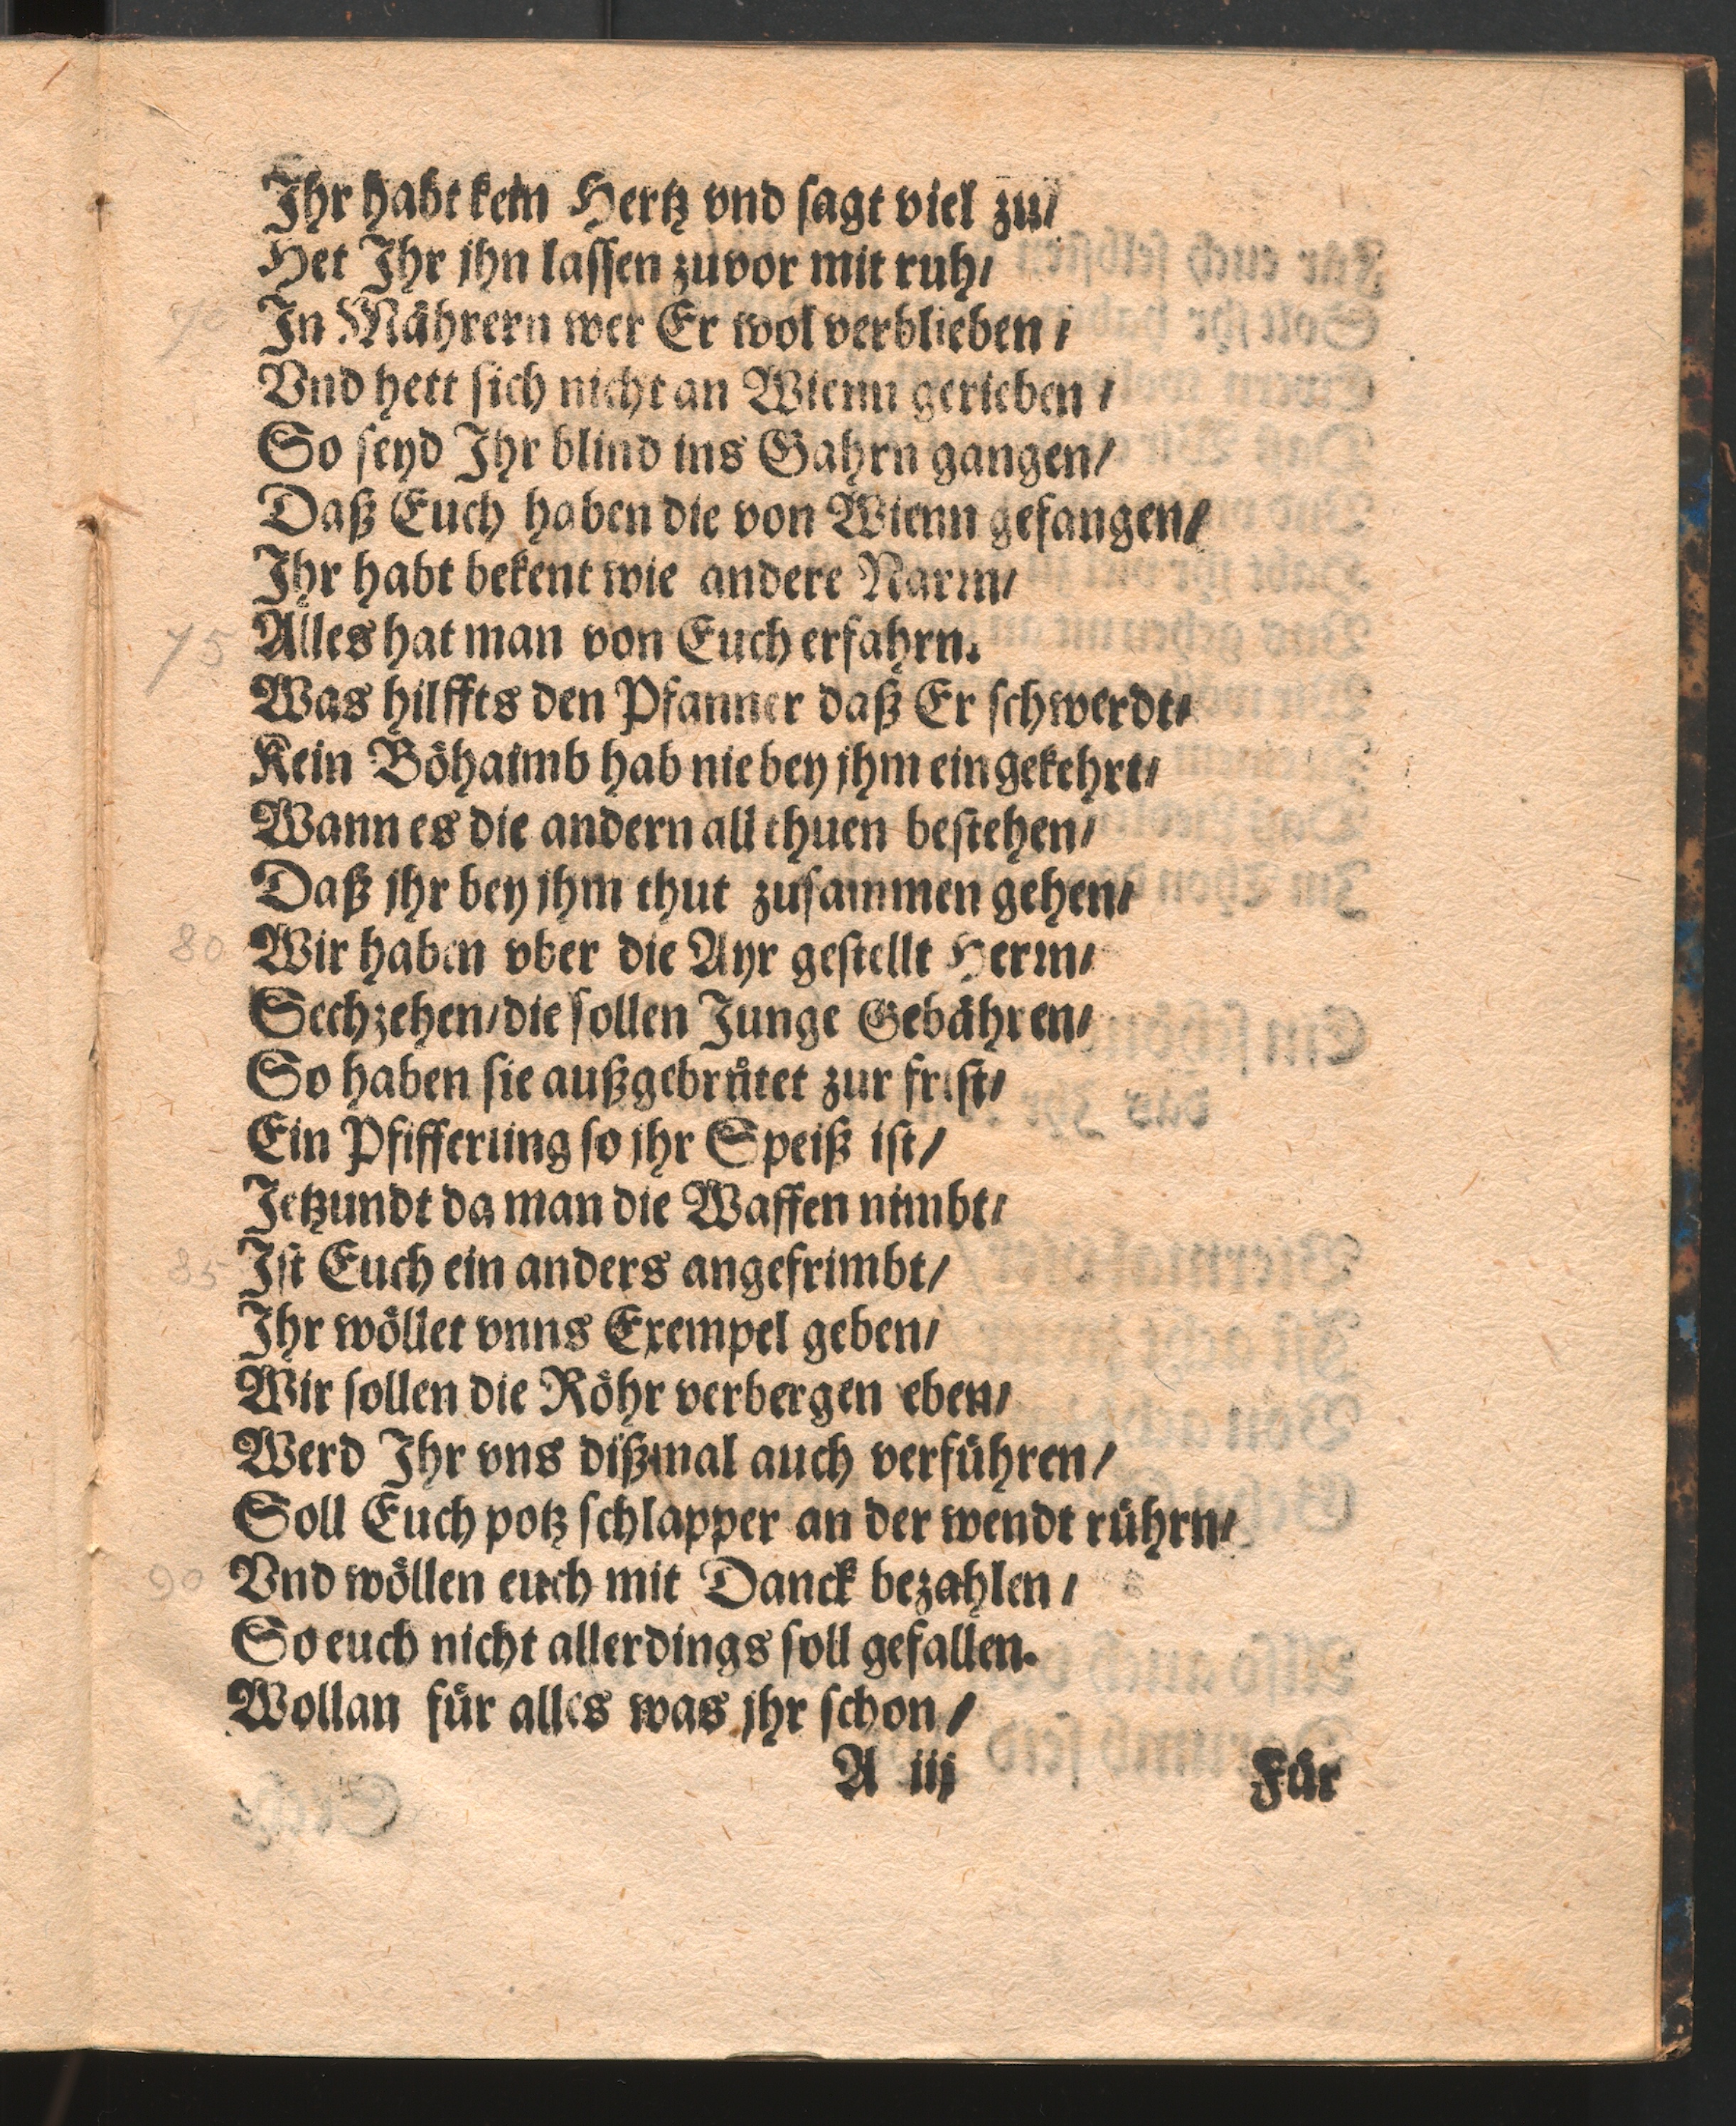 Ihr habt kein Hertz vnd sagt viel zu/
Het Ihr jhn lassen zuvor mit ruh/
70 In Mährern wer Er wol verblieben /
Vnd hett sich nicht an Wienn gerieben /
So seyd Ihr blind ins Gahrn gangen/
Daß Euch haben die von Wienn gefangen/
Ihr habt bekent wie andere Narrn/
75 Alles hat man von Euch erfahrn.
Was hilffts den Pfanner daß Er schwerdt/
Kein Böhaimb hab nie bey jhm eingekehrt/
Wann es die andern all thuen bestehen/
Daß jhr bey jhm thut zusammen gehen/
80 Wir haben vber die Ayr gestellt Herrn/
Sechzehen/die sollen Junge Gebähren/
So haben sie außgebrütet zur frist/
Ein Pfifferling so jhr Speiß ist/
Jetzundt da man die Waffen nimbt/
85 Ist Euch ein anders angefrimbt/
Ihr wöllet vnns Exempel geben/
Wir sollen die Röhr verbergen eben/
Werd Ihr vns dißmal auch verführen/
Soll Euch potz schlapper an der wendt rührn/
90 Vnd wöllen euch mit Danck bezahlen /
So euch nicht allerdings soll gefallen.
Wollan für alles was jhr schon /
A iij Für